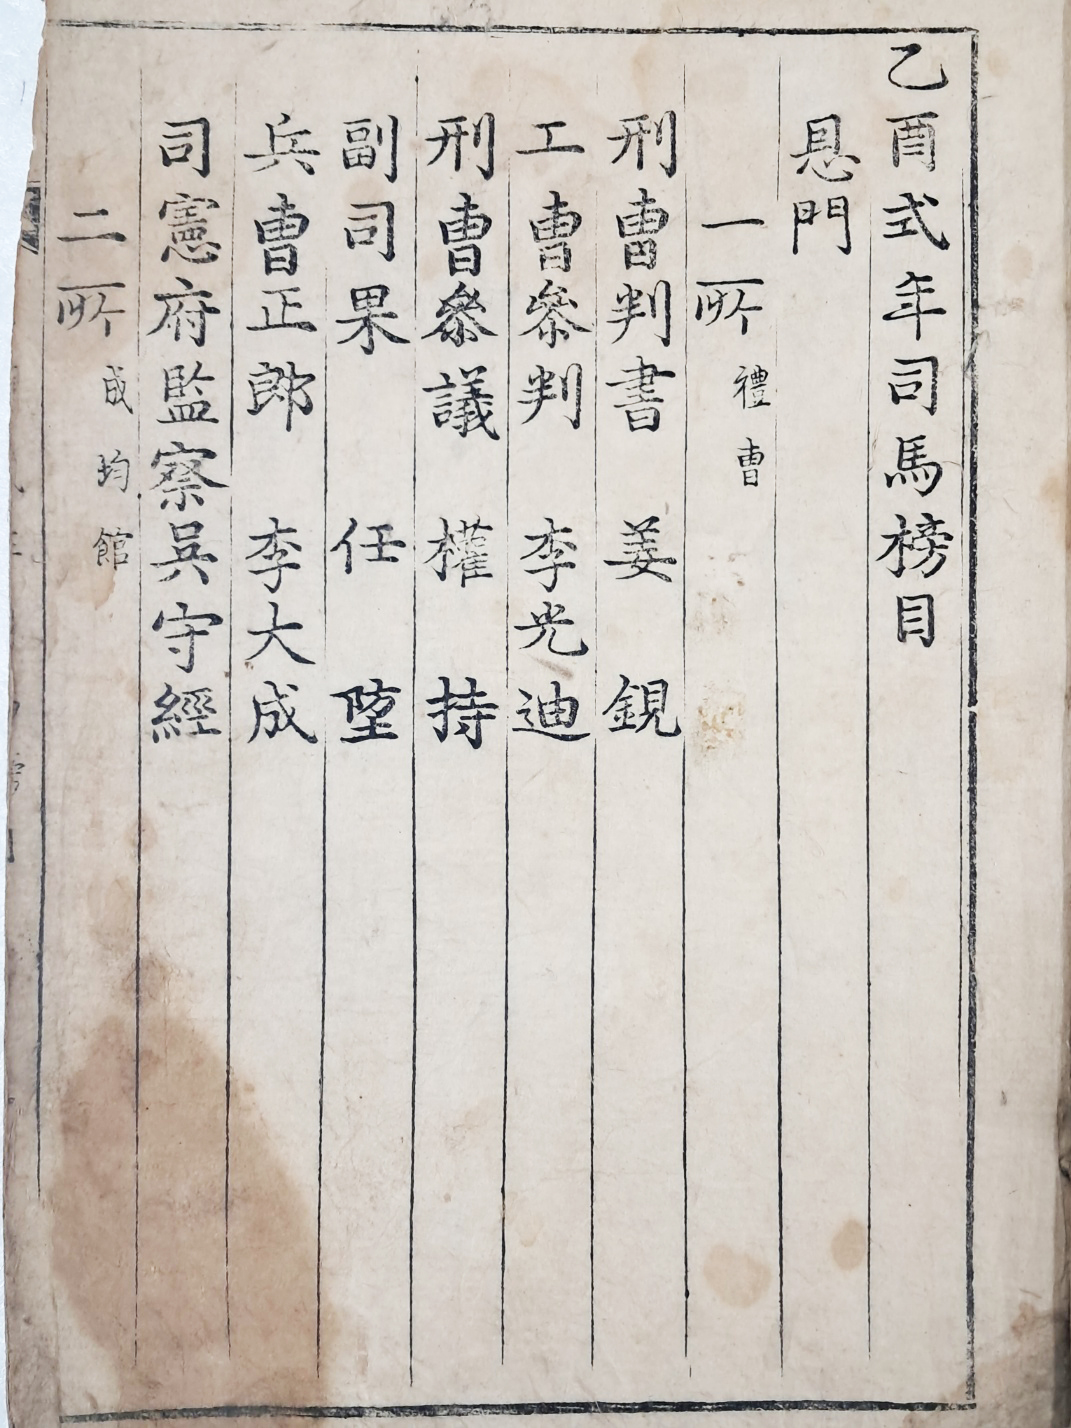 乙酉式年司馬榜目
恩門
一所 禮曺
刑曺判書 姜 鋧
工曺叅判 李光迪
刑曺叅議 權 持
副司果 任 堕
兵曺正郎 李大成
司憲府監察吳守經
二所 成均館